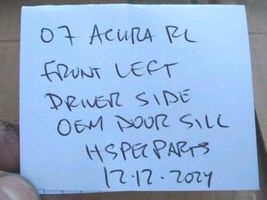 07 ACURA RL
FRONT LEFT
DRIVER SIDE
OEM DOOR SILL
HSPEPARTS
12.12.2024